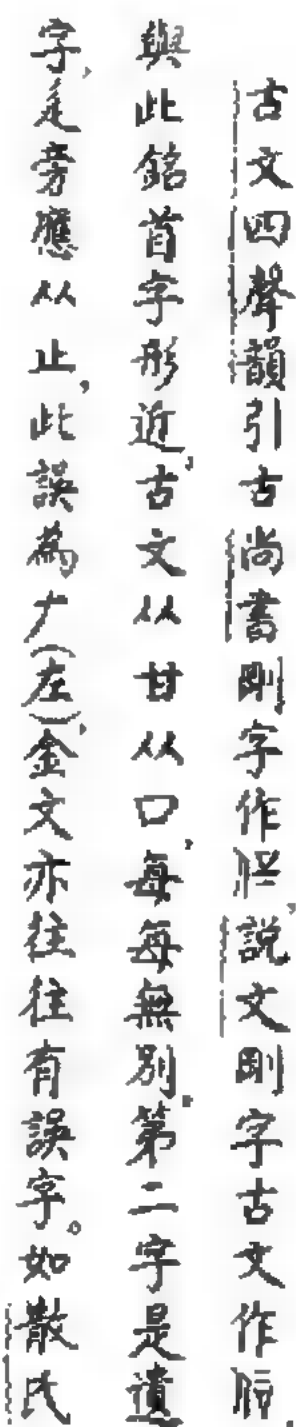 古文四聲韻引古尚書剛字作，說文剛字古文作
與此銘首字形近，古文从甘从口，每每無別。第二字是遺
字，辵旁應从止，此誤為𠂇（左），金文亦往往有誤字。如散氏